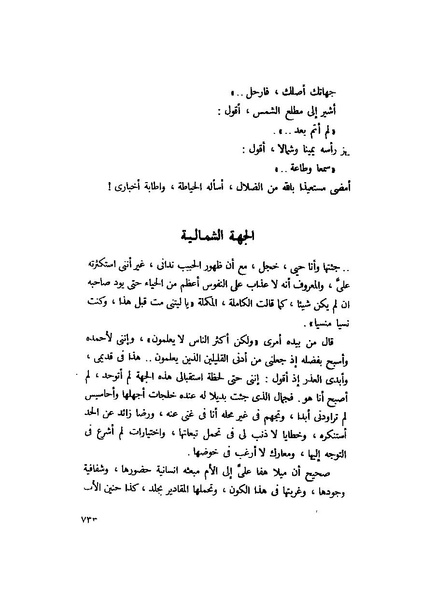 جهاتك أصلك ، فارحل .. »
أشير إلى مطلع الشمس ، أقول :
« لم أتم بعد .. » .
يهز رأسه يمينا وشمالا ، أقول :
« سمعا وطاعة .. »
أمضى مستعيذا بالله من الضلال ، أسأله الحياطة ، واطابة أخبارى !
الجهة الشمالية
.. جئتها وأنا حيى ، خجل ، مع أن ظهور الحبيب ندانى ، غير أننى استكثرته
علىَّ ، والمعروف أنه لا عذاب على النفوس أعظم من الحياء حتى يود صاحبه
ان لم يكن شيئا ، كما قالت الكاملة ، المكملة « يا ليتنى مت قبل هذا ، وكنت
نسيا منسيا » .
قال من بيده أمرى « ولكن أكثر الناس لا يعلمون » ، وإننى لأحمده
وأسبح بفضله إذ جعلنى من أدنى القليلين الذين يعلمون .. هذا فى قديمى ،
وأبدى العذر إذ أقول : إننى حتى لحظة استقبالى هذه الجهة لم أتوحد ، لم
أصبح أنا هو . فجمال الذى جئت بديلا له عنده خلجات أجهلها وأحاسيس
لم تراودنى أبدا ، وتجهم فى غير محله أنا فى غنى عنه ، ورضا زائد عن الحد
أستنكره ، وخطايا لا ذنب لى فى تحمل تبعاتها ، واختيارات لم أشرع فى
التوجه إليها ، ومعارك لا أرغب فى خوضها .
صحيح أن ميلا هفا علىَّ إلى الأم مبعثه انسانية حضورها ، وشفافية
وجودها ، وغربتها فى هذا الكون ، وتحملها المقادير بجلد ، كذا حنين الأب
٧٣٣